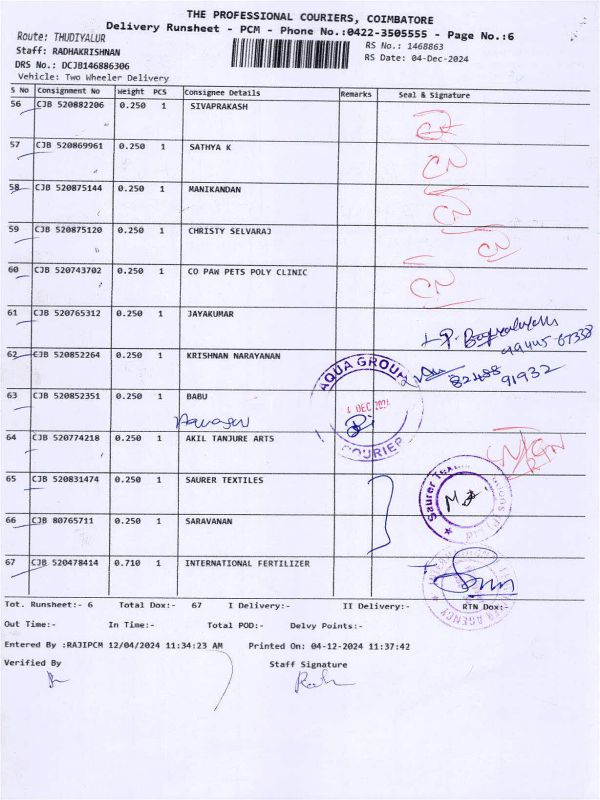 THE PROFESSIONAL COURIERS, COIMBATORE
Delivery Runsheet - PCM - Phone No.:0422-3505555 - Page No.:6
Route: THUDIYALUR
RS No.: 1468863
Staff: RADHAKRISHNAN
RS Date: 04-Dec-2024
DRS No.: DCJB146886306
Vehicle: Two Wheeler Delivery
S No Consignment No Weight PCS Consignee Details Remarks Seal & Signature
56 CJB 520882206 0.250 1 SIVAPRAKASH
57 CJB 520869961 0.250 1 SATHYA K
CN
58 CJB 520875144 0.250 1 MANIKANDAN
CN
59 CJB 520875120 0.250 1 CHRISTY SELVARAJ
CN
60 CJB 520743702 0.250 1 CO PAW PETS POLY CLINIC
CN
61 CJB 520765312 0.250 1 JAYAKUMAR
62 CJB 520852264 0.250 1 KRISHNAN NARAYANAN
82488 91932
63 CJB 520852351 0.250 1 BABU
AQUA GROUP
DEC 2024
COURIER
64 CJB 520774218 0.250 1 AKIL TANJURE ARTS
RTN
65 CJB 520831474 0.250 1 SAURER TEXTILES
Saurer
66 CJB 80765711 0.250 1 SARAVANAN
67 CJB 520478414 0.710 1 INTERNATIONAL FERTILIZER
AGENCY
Tot. Runsheet:- 6 Total Dox:- 67 I Delivery:- II Delivery:- RTN Dox:-
Out Time:- In Time:- Total POD:- Delvy Points:-
Entered By :RAJIPCM 12/04/2024 11:34:23 AM Printed On: 04-12-2024 11:37:42
Verified By Staff Signature